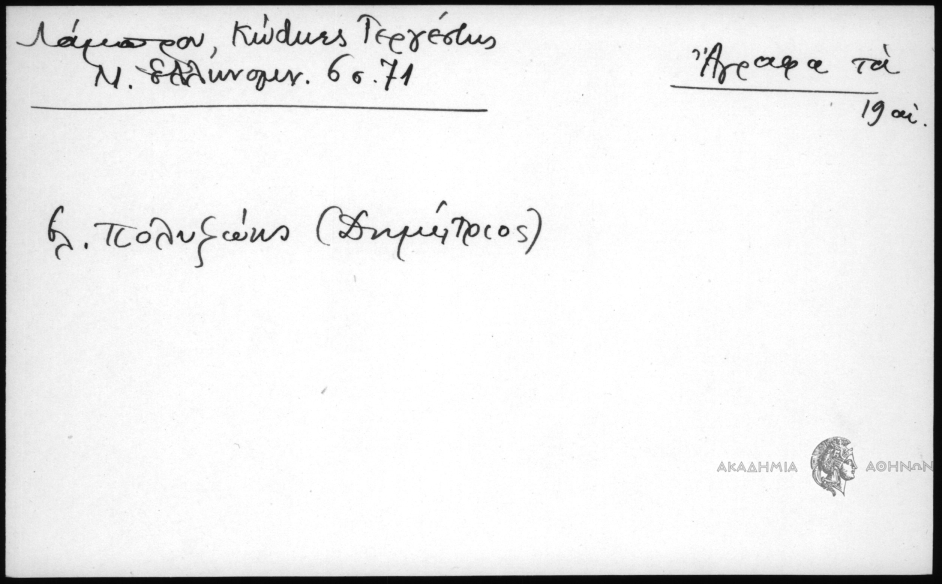 Λάμπρου, Κώδικες Τεργέστης
Ν. Ελληνομν. 6 σ. 71
Ἄγραφα τὰ
19 αἰ.
βλ. Πολυζώης (Δημήτριος)
ΑΚΑΔΗΜΙΑ ΑΘΗΝΩΝ